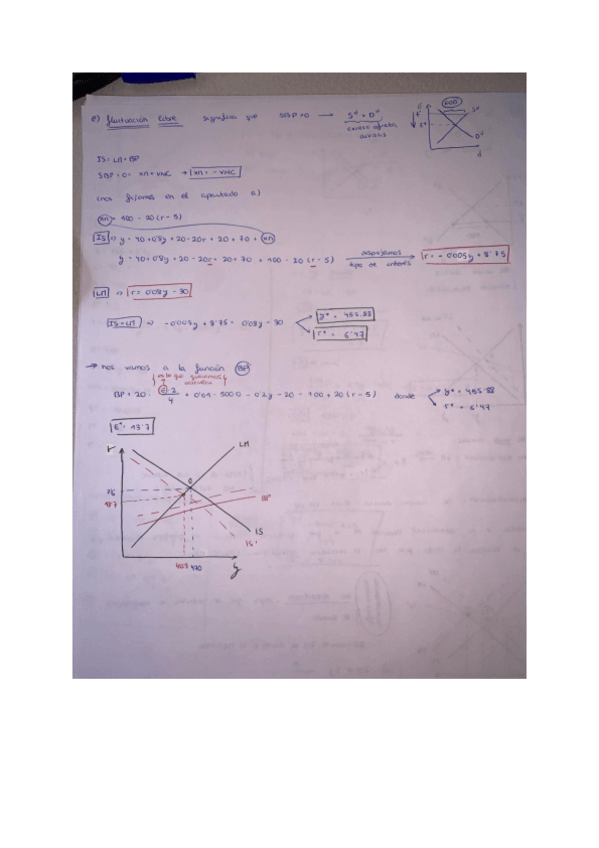 e) fluctuación libre significa que SBP=0 → Sᵈ > Dᵈ
exceso oferta divisas
E
E*
Sᵈ
Dᵈ
d
IS = LM = BP
SBP = 0 = XN + VNC → XN = - VNC
(nos fijamos en el apartado a)
XN = 400 - 20 (r - 5)
IS ⇒ y = 40 + 0'8y + 20 - 20r + 20 + 70 + XN
y = 40 + 0'8y + 20 - 20r + 20 + 70 + 400 - 20 (r - 5) despejamos tipo de interés → r = - 0'005y + 8'75
LM ⇒ r = 0'08y - 30
IS = LM ⇒ -0'005y + 8'75 = 0'08y - 30
y* = 455.88
r* = 6'47
→ nos vamos a la función BP
es lo que queremos calcular
+ 0'01 · 5000 - 0'2y - 20 - 400 + 20 (r - 5) donde
y* = 455.88
r* = 6'47
E* = 13'7
r
LM
0
7'6
BP'
IS
IS'
470
y